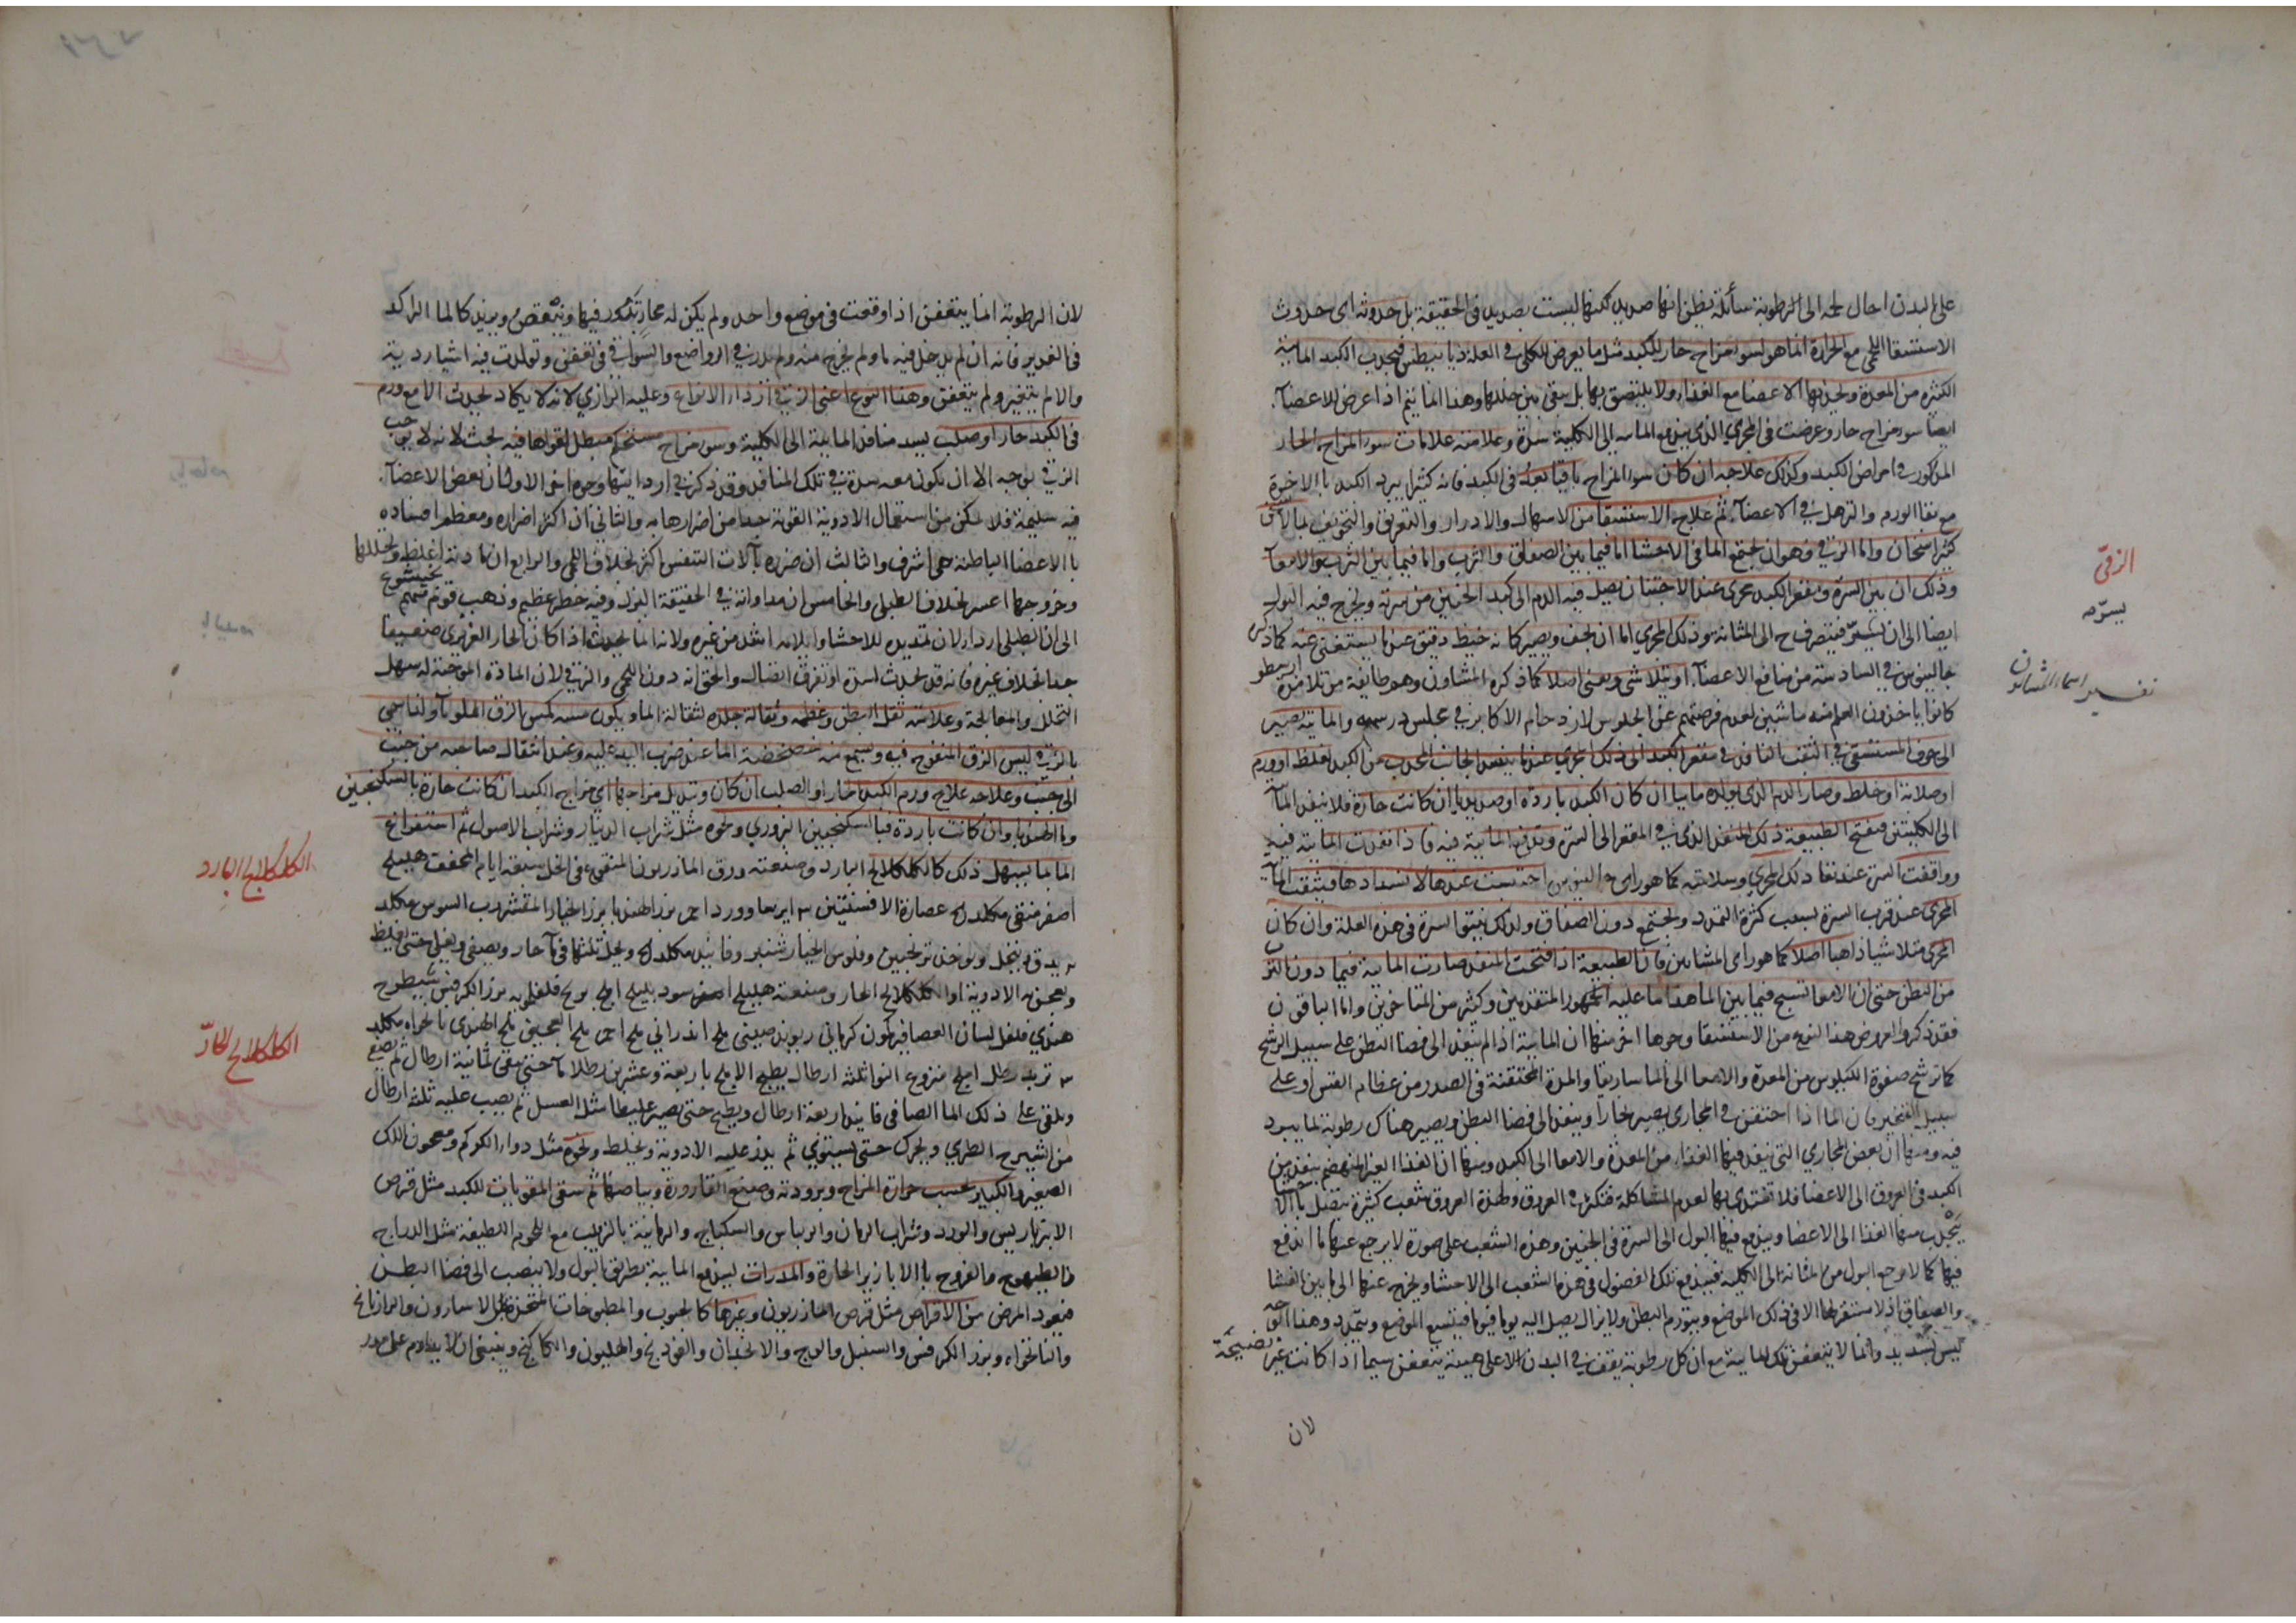 على البدن احال لحمه الى الرطوبة سائلة يظن انها صديد لكنها ليست بصديد في الحقيقة بل حدوثه اى حدوث
الاستسقا اللحمى مع الحرارة انما هو لسو مزاج حار للكبد مثل ما يعرض للكلى في العلة ديابيطس فيجذب الكبد المائية
الكثيرة من المعدة ويجذبها الاعضا مع الغذاء ولا يلتصق بها بل يبقى بين خللها وهذا انما يتم اذا عرض للاعضآء
ايضا سو مزاج حار وعرضت في المجرى الذى يندفع المائية الى الكلية سدة وعلامته علامات سوء المزاج الحار
المذكور في امراض الكبد وكذلك علاجه ان كان سوء المزاج باقيا بعد في الكبد فانه كثيرا يبرد الكبد بالاخرة
مع بقا الورم والترهل في الاعضآء ثم علاج الاستسقا من الاسهال والادرار والتعريق والتجويف بما لا
كثير اسخان واما الزقي فهو ان يجتمع الما في الاحشا اما فيما بين الصفاق والثرب واما فيما بين الثرب والامعآ
وذلك ان بين السرة ومقعر الكبد مجرى عند الاجتنان يصل فيه الدم الى كبد الجنين من سرته ويخرج فيه البول
ايضا الى ان يسر فينصرف ح الى المثانة وذلك المجرى اما ان يجف ويصير كانه خيط دقيق عندما يستغنى عنه كما ذكر
جالينوس في السادسة من منافع الاعضآ او يتلاشى ويفنى اصلا كما ذكره المشاؤن وهو طائفة من تلامذة ارسطو
كانوا ياخذون العلم منه ماشيين لعدم فرصتهم عن الجلوس لازدحام الاكابر في مجلس درسه والمائية يصير
الى جوف المستسقى في الثقب النافذ في مقعر الكبد الى ذلك المجرى عندما ينسد الجانب المحدب من الكبد لغلظ او ورم
او صلابة او خلط وصار الدم الذى يولده مائيا ان كان الكبد باردة او صديديا ان كانت حارة فلا ينفذ المآ
الى الكليتين فيفتح الطبيعة ذلك المنفذ الذى في المقعر الى السرة وتدفع المائية فيه فاذا نفذت المائية فيه
ووافقت السرة عند بقا ذلك المجرى وسلامته كما هو راى جالينوس احتبست عندها لانسدادها فيثقب المآ
المجرى عند قرب السرة لسبب كثرة التمدد ويجتمع دون الصفاق ولذلك ينتوا السرة في هذه العلة وان كان
المجرى متلاشيا ذاهبا اصلا كما هو راى المشائين فان الطبيعة اذا فتحت المنفذ صارت المائية فيما دون الثرب
من البطن حتى ان الامعا تسبح فيما بين الما هذا ما عليه الجمهور المتقدمين وكثير من المتاخرين واما الباقون
فقد ذكروا لعروض هذا النوع من الاستسقا وجوها اخر منها ان المائية اذا لم تنفذ الى فضا البطن على سبيل الرشح
كما ترشح صفوة الكيلوس من المعدة والامعا الى الماساريقا والمدة المحتقنة في الصدر من عظام القس او على
سبيل التبخير فان الما اذا احتقن في المجارى يصير بخارا وينفذ الى فضا البطن ويصير هناك رطوبة لما يبرد
فيه ومنها ان بعض المجارى التى ينفذ فيها الغذاء من المعدة والامعا الى الكبد ومنها ان الغذا الغير المنهضم ينفذ من
الكبد في العروق الى الاعضا فلا تغتذى بها لعدم المشاكلة فتكثر في العروق ولهذه العروق شعب كثيرة يتصل بالاحشا
يجذب منها الغذا الى الاعضا ويندفع فيها البول الى السرة في الجنين وهذه الشعب على صورة لا يرجع عنها ما اندفع
فيها كما لا يرجع البول من المثانة الى الكلية فيندفع تلك الفضول في هذه الشعب الى الاحشا ويخرج عنها الى ما بين الغشا
والصفاق اذ لا مستقر لها الا في ذلك الموضع ويتورم البطن ولا يزال يصل اليه يوما فيوما فيتسع الموضع ويتمدد وهذا الوجه
ليس بسديد وانما لا يتعفن تلك المائية مع ان كل رطوبة يقف في البدن لا على هيئة يتعفن سيما اذا كانت غير نضيجة
لان
الزقيّ
يسرّه
تفسير اسما المشائون
لان الرطوبة انما يتعفن اذا وقفت في موضع واحد ولم يكن له مجار يتكرر فيها وينتقص ويزيد كالما الراكد
في الغدير فانه ان لم يدخل فيه ما ولم يخرج منه ولم يدر في الرواضع والسواقى تعفن وتولدت فيه اشيا ردية
والا لم يتغير ولم يتعفن وهذا النوع اعنى الزقى اردأ الانواع وعليه الرازى لانه لا يكاد يحدث الا مع ورم
في الكبد حار او صلب يسد منافذ المائية الى الكلية وسو مزاج مستحكم مبطل لقواها فيه بحث لانه لا يوجب
الزقى بوجه الا ان يكون معه سدة في تلك المنافذ وقد ذكر في اردائيتها وجوه اخر الاول ان بعض الاعضآء
فيه سليمة فلا يمكن من استعمال الادوية القوية حذرا من اضرارها به والثانى ان اكثر اضراره ومعظم افساده
بالاعضا الباطنة هى اشرف والثالث ان ضرره بآلات التنفس اكثر بخلاف اللحمى والرابع ان مادته اغلظ وتحللها
وخروجها اعسر بخلاف الطبلى والخامس ان مداواته في الحقيقة البزل وفيه خطر عظيم وذهب قوم منهم بختيشوع
الى ان الطبلى اردأ لان تمديده للاحشا وايلامه اشد من غيره ولانه انما يحدث اذا كان الحار الغريزى ضعيفا
جدا بخلاف غيره فانه قد يحدث لسدة او تفرق اتصال والحق انه دون اللحمى والزقى لان المادة الموجبة له سهل
التحلل والمعالجة وعلامته ثقل البطن وعظمه وصقالة جلده لثقالة الما ويكون مسه كمس الزق المملو مآء ولذا سمى
بالزقى ليس الزق المنفوخ فيه ويسمع منه خضخضة الما عند ضرب اليد عليه وعند انتقال صاحبه من جنب
الى جنب وعلاجه علاج ورم الكبد الحار او الصلب ان كان وتبديل مزاجها اى مزاج الكبد ان كانت حارة بالسكنجبين
وما الهندبا وان كانت باردة فبالسكنجبين البزورى ونحوه مثل شراب الدينار وشراب الاصول ثم استفراغ
الما بما يسهل ذلك كالكلكلانج البارد وصنعته ورق المازريون المنقوع في الخل سبعة ايام المجفف هليلج
اصفر منقى مكلد عصارة الافسنتين ورد احمر بزر الهندبا بزر الخيار المقشر رب السوس مكلد
يدق وينخل ويوخذ ترنجبين وفلوس الخيار شنبر وفانيذ مكلد ويحل ثلثها في مآء حار ويصفى ويغلى حتى يغلظ
ويعجن به الادوية او الكلكلانج الحار وصنعته هليلج اصفر اسود بليلج املج برنج فلفلمويه بزر الكرفس شيطرج
هندى فلفل لسان العصافير كمون كرمانى ريوند صينى ملح اندرانى ملح احمر ملح العجين ملح الهندى بالحراه مكلد
تربد رطل املج منزوع النوا ثلثة ارطال يطبخ الاملج باربعة وعشرين رطلا مآء حتى يبقى ثمانية ارطال ثم يصفى
ويلقى على ذلك الما الصافى فانيذ اربعة ارطال ويطبخ حتى يصير غليظا مثل العسل ثم يصب عليه ثلثة ارطال
من الشيرج الطرى ويحرك حتى يستوى ثم يذر عليه الادوية ويخلط ونحوه مثل دواء الكركم ومعجون اللك
الصغير والكبير بحسب حرارة المزاج وبرودته وصبغ القارورة وبياضها ثم سقى المقويات للكبد مثل قرص
الانبرباريس والورد وشراب الرمان والريباس والسكباج والرمانية بالزبيب مع اللحوم اللطيفة مثل الدراج
والطيهوج والفروج بالابازير الحارة والمدرات ليندفع المائية بطريق البول ولا ينصب الى فضا البطن
فيعود المرض من الاقراص مثل قرص المازريون وغيرها كالحبوب والمطبوخات المتخذة من الاسارون والرازيانج
والنانخواه وبزر الكرفس والسنبل والوج والانجدان والفوذنج والهليون والكاكنج وينبغى ان لا يداوم على مدر
الكلكلانج البارد
الكلكلانج الحارّ